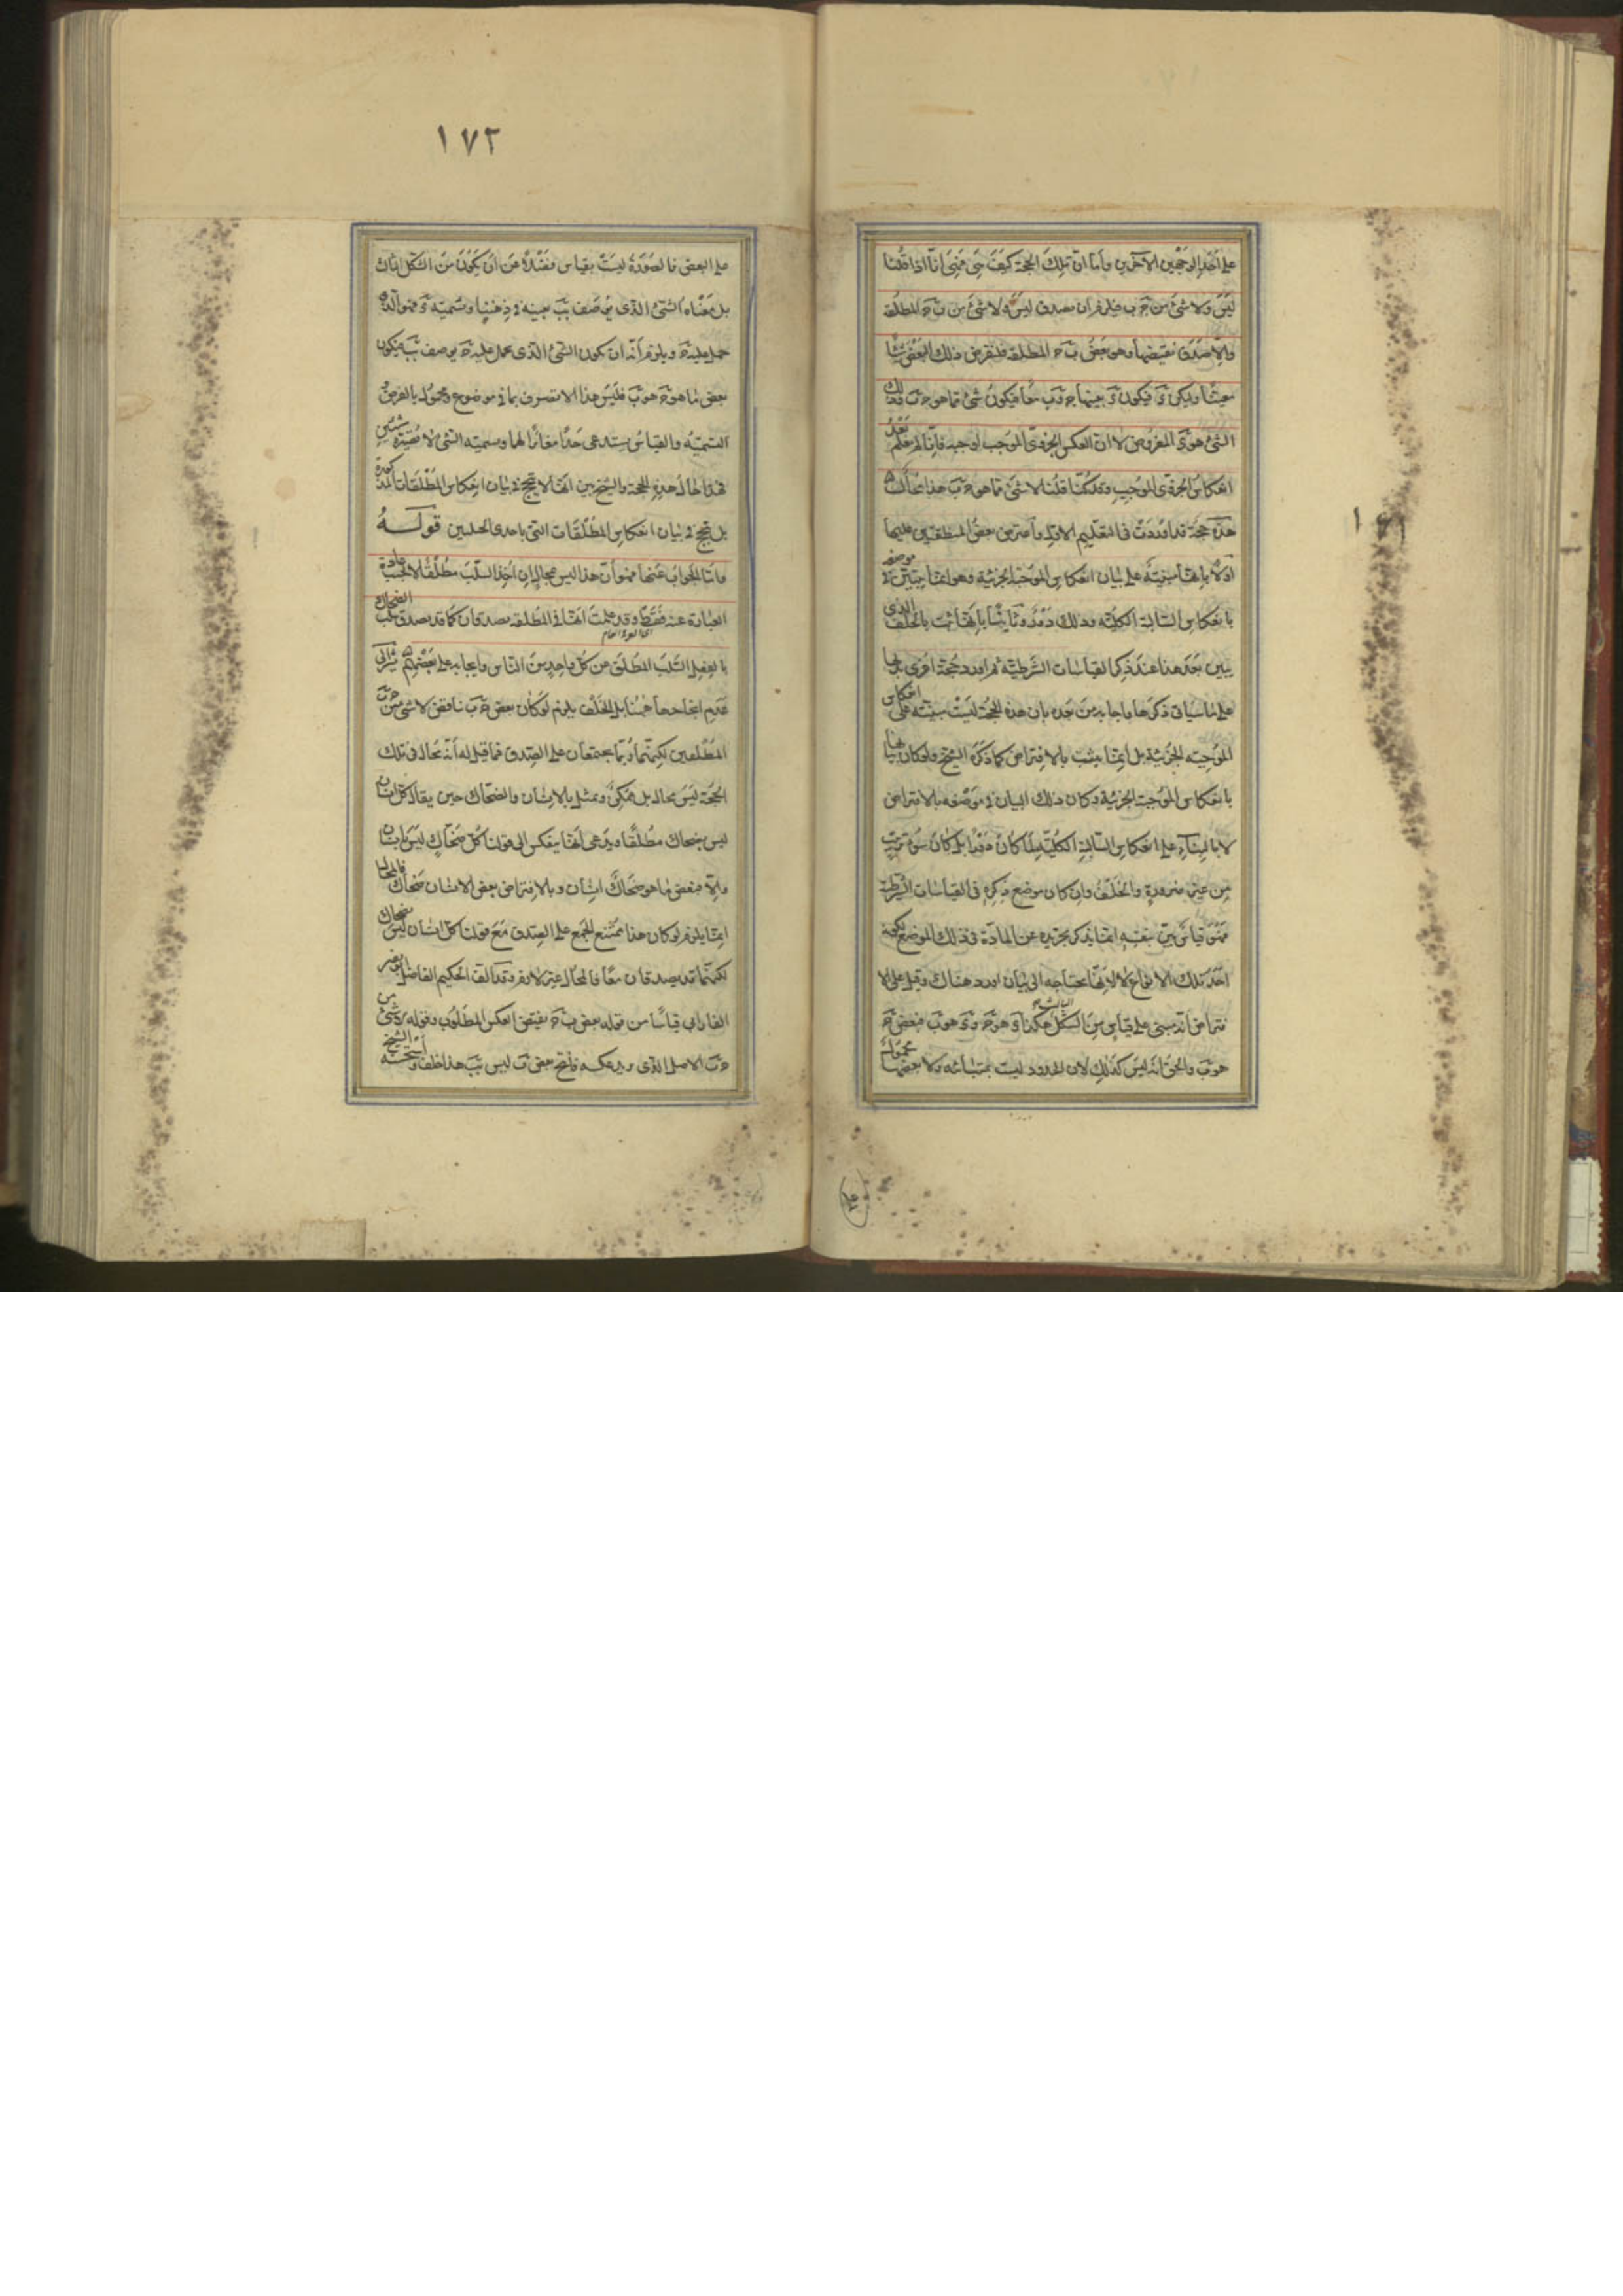 على احد الوجهين الآخرين واما ان تلك الحجة كيف هي فهي انا اذا قلنا
ليس ولا شئ من جَ بَ فيلزم ان يصدق ليس ولا شئ من بَ جَ المطلقة
والا صدق نقيضها وهو بعض بَ جَ المطلقة فلنفرض ذلك البعض شيئا
معينا وليكن دَ فيكون دَ بعينها جَ وبَ معا فيكون شئ مما هو جَ بَ وذلك
الشئ هو دَ المفروض لا ان العكس الجزوى الموجب اوجبه فانا لم نعلم بعد
انعكاس الجزوى الموجب وقد كنا قلنا لا شئ مما هو جَ بَ هذا محال
هذه حجة قد اوردت فى التعليم الاول واعترض بعض المنطقيين عليها
اولا بانها مبنية على بيان انعكاس الموجبة الجزئية وهو انما يتبين فى موضعه
بانعكاس السالبة الكلية وذلك دور وثانيا بانها تبت بالخلف الذى
يبين بعد هذا عند ذكر القياسات الشرطية ثم اورد حجة اخرى
على ما سياتى ذكرها واجاب من بعده بان هذه الحجة ليست مبنية على انعكاس
الموجبة الجزئية بل انما يثبت بالافتراض كما ذكره الشيخ ولو كان بيانها
بانعكاس الموجبة الجزئية وكان ذلك البيان فى موضعه بالافتراض
لا بالبناء على انعكاس السالبة الكلية لما كان دورا بل كان سوء ترتيب
من غير ضرورة والخلف وان كان موضع ذكره فى القياسات الشرطية
فهو قياس بين بنفسه انما يذكر تجريده عن المادة فى ذلك الموضع لكونه
احد تلك الانواع لا لانها يحتاج الى بيان اورد هناك وقيل على الا
فتراض انه مبنى على قياس من الشكل الثالث هكذا دَ هو جَ و دَ هو بَ فبعض جَ
هو بَ والحق انه ليس كذلك لان الحدود ليست بمتباينة ولا بعضها محمولا
١٧٢
على البعض فالصورة ليست بقياس فضلا عن ان يكون من الشكل الثالث
بل معناه الشئ الذى يوصف ببَ بعينه فى ذهننا وسميته دَ فهو الذى
حمل عليه جَ ويلزم انه ان كون الشئ الذى يحمل عليه جَ يوصف ببَ فيكون
بعض ما هو جَ هو بَ فليس هذا الا تصرف ما فى موضوع ومحمول بالفرض و
التسمية والقياس يستدعى حدا مغايرا لهما وتسمية الشئ لا تصيره شيئين
فهذا حال هذه الحجة والشيخ بين انها لا ينتج فى بيان انعكاس المطلقات المذكورة
بل ينتج فى بيان انعكاس المطلقات التى باحدى الحيلتين قوله
واما الجواب عنها فهو ان هذا ليس بمحال ان اخذ السلب مطلقا لا بحسب عادة
العبارة عنه فقط وقد علمت انها فى المطلقة يصدقان كما قد يصدق سلب الضحاك
بالفعل السلب المطلق عن كل واحد من الناس وايجابه على بعضهم
عدم انجاحها ههنا بل الخلف يلزم لو كان بعض جَ بَ نا قض لا شئ من جَ بَ
المطلقين لكنهما ربما يجتمعان على الصدق فما قيل له انه محال فى تلك
الحجة ليس بمحال بل ممكن وتمثل بالانسان والضحاك حين يقال كل انسان
ليس بضحاك مطلقا ويدعى انها ينعكس الى قولنا كل ضحاك ليس بانسان
والا فبعض ما هو ضحاك انسان وبالافتراض بعض الانسان ضحاك فالمحال
انما يلزم لو كان هذا ممتنع الجمع على الصدق مع قولنا كل انسان ليس بضحاك
لكنهما قد يصدقان معا فالمحال غير لازم وقد الف الحكيم الفاضل ابو نصر
الفارابى قياسا من قوله بعض بَ جَ نقيض العكس المطلوب وقوله لا شئ من
جَ بَ الاصل الذى يريد عكسه فانتج بعض بَ ليس ببَ هذا خلف واستحسنه الشيخ